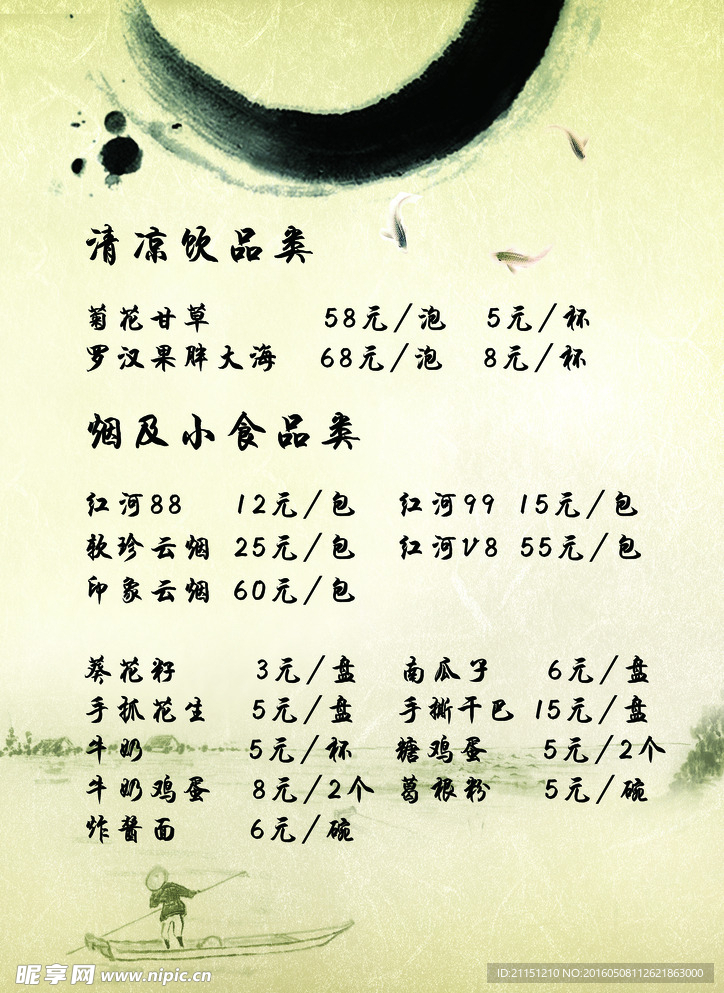 清凉饮品类
菊花甘草 58元/泡 5元/杯
罗汉果胖大海 68元/泡 8元/杯
烟及小食品类
红河88 12元/包 红河99 15元/包
软珍云烟 25元/包 红河V8 55元/包
印象云烟 60元/包
葵花籽 3元/盘 南瓜子 6元/盘
手抓花生 5元/盘 手撕干巴 15元/盘
牛奶 5元/杯 糖鸡蛋 5元/2个
牛奶鸡蛋 8元/2个 葛根粉 5元/碗
炸酱面 6元/碗
昵享网 www.nipic.cn
ID:21151210 NO:20160508112621863000